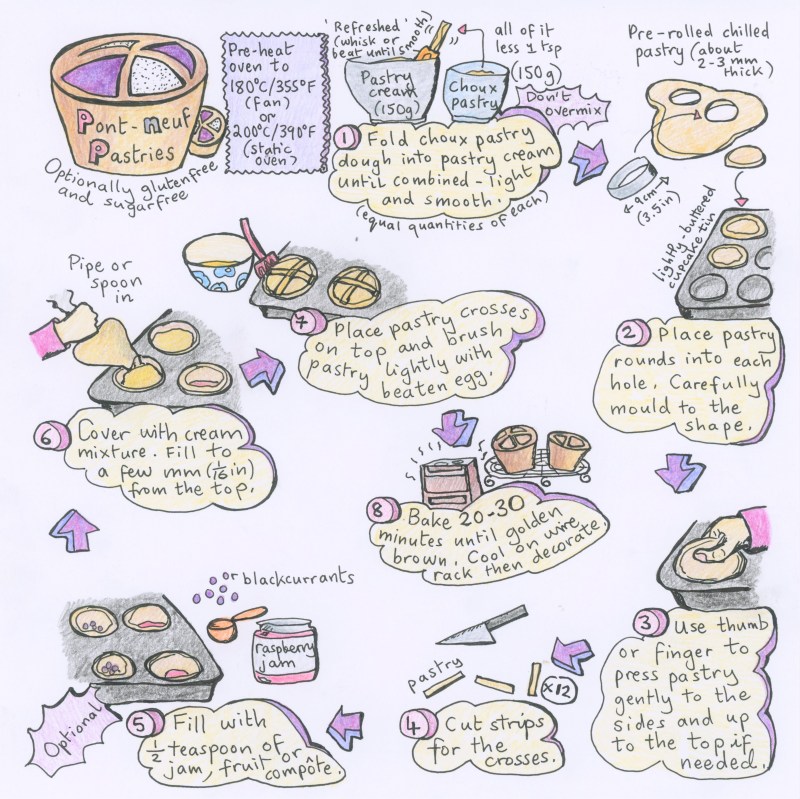 Pont-Neuf
Pastries
Optionally glutenfree
and sugarfree
Pre-heat
oven to
180°C/355°F
(Fan)
or
200°C/390°F
(static
oven)
'Refreshed'
(whisk or
beat until smooth)
Pastry
cream
(150g)
all of it
less 1 tsp
(150g)
Choux
pastry
Don't
overmix
1 Fold choux pastry
dough into pastry cream
until combined - light
and smooth.
(equal quantities of each)
Pre-rolled chilled
pastry (about
2-3 mm
thick)
9cm
(3.5in)
lightly-buttered
cupcake tin
2 Place pastry
rounds into each
hole. Carefully
mould to the
shape.
3 Use thumb
or finger to
press pastry
gently to the
sides and up
to the top if
needed.
pastry
x12
4 Cut strips
for the
crosses.
or blackcurrants
raspberry
jam
Optional
5 Fill with
1/2 teaspoon of
jam, fruit or
compôte.
Pipe or
spoon
in
6 Cover with cream
mixture. Fill to
a few mm (1/16 in)
from the top.
7 Place pastry crosses
on top and brush
pastry lightly with
beaten egg.
8 Bake 20-30
minutes until golden
brown. Cool on wire
rack then decorate.